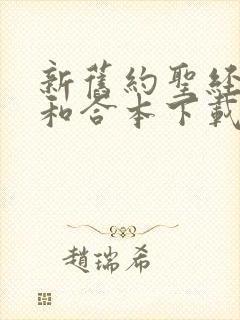 新舊約聖經
和合本下載
趙瑞希